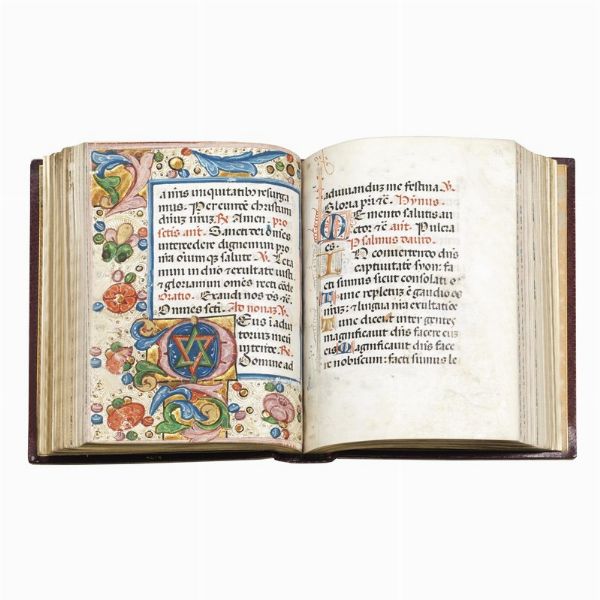 a nris iniquitatibus resurga
mus. Per eunde christum
dnium nrum. R. Amen. pro
fetis ant. Sancti dei omnes
intercedere dignemini pro
nra oniumque salute. V. Leta
mini in dno et exultate iusti
et gloriamini omnes recti corde
Oratio. Exaudi nos ds etc.
Omnes scti. Ad nonam. V.
Deus in adiu
torium meu
intende. R.
Domine ad
adiuvandum me festina. V.
Gloria pri etc. Hymnus.
Memento salutis au
ctor etc. ant. Pulcra
es. Psalmus david.
In convertendo dns
captivitate syon: fa
cti sumus sicut consolati
Tunc repletum est gaudio os
nrm: et lingua nra exultatione
Tunc dicent inter gentes
magnificavit dns facere cum
eis Magnificavit dns face
re nobiscum: facti sumus le